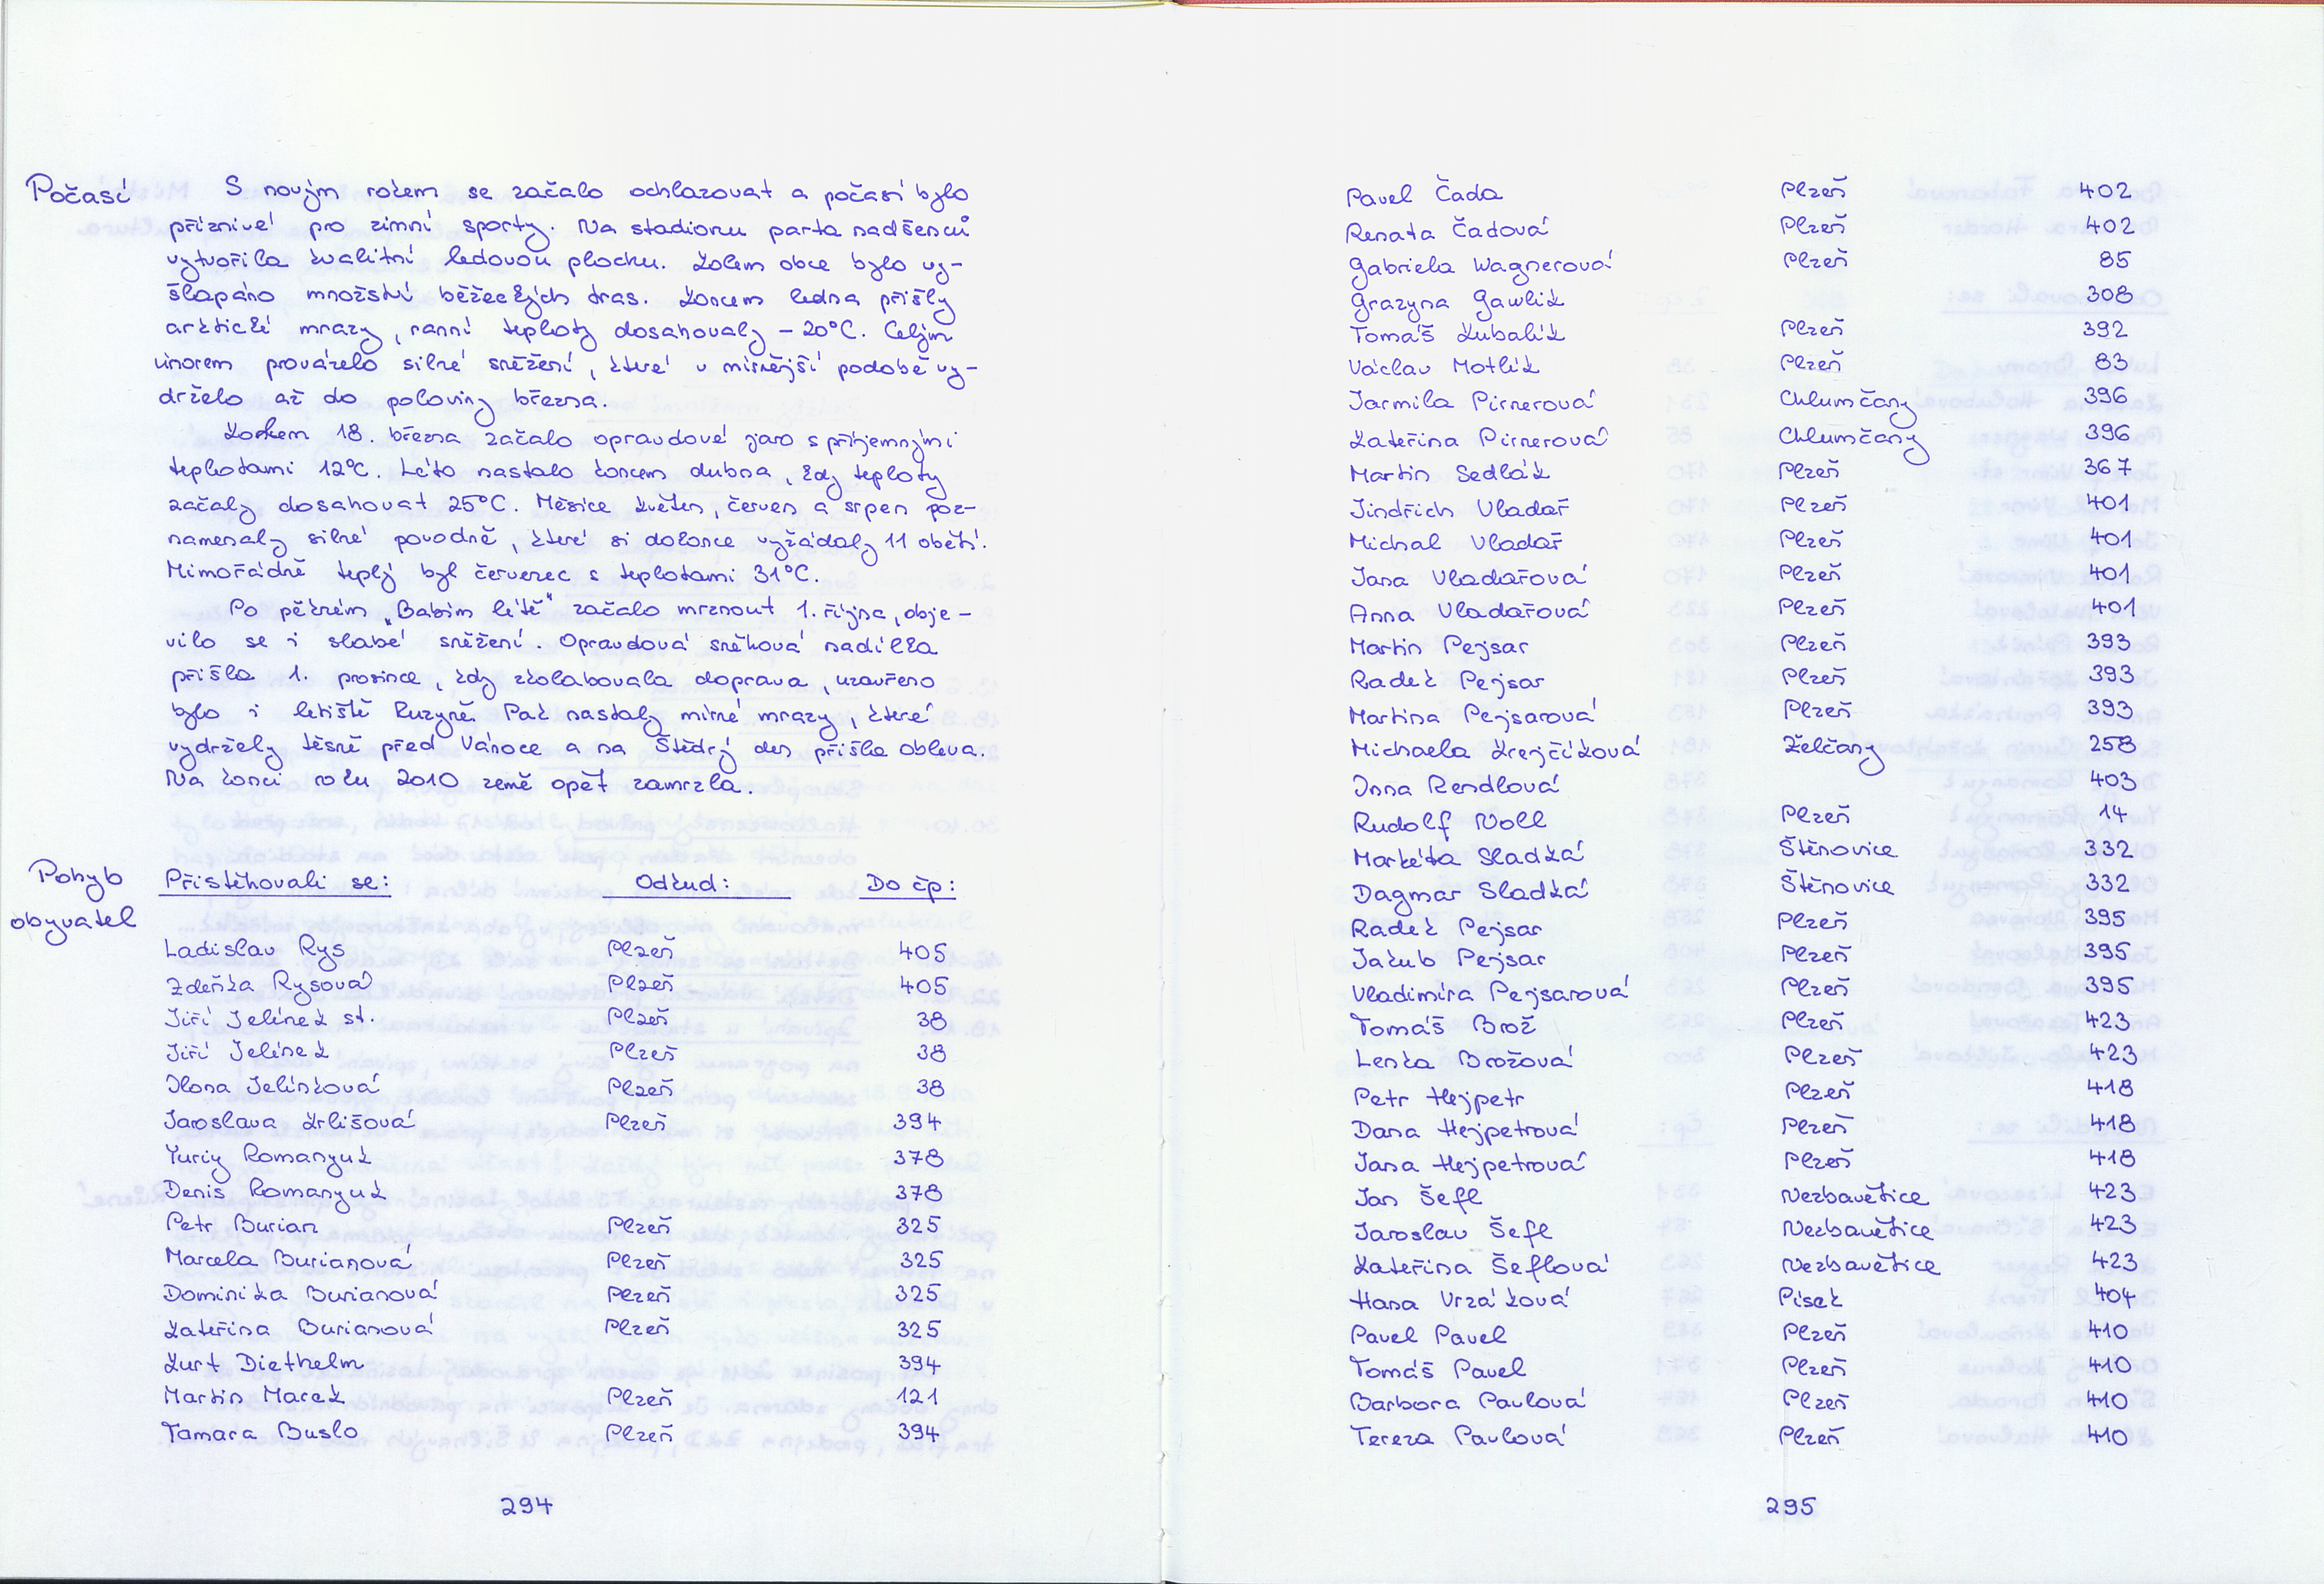 Počasí
S novým rokem se začalo ochlazovat a počasí bylo
příznivé pro zimní sporty. Na stadionu parta nadšenců
vytvořila kvalitní ledovou plochu. Kolem obce bylo vy-
šlapáno množství běžeckých tras. Koncem ledna přišly
arktické mrazy, ranní teploty dosahovaly -20°C. Celým
únorem provázelo silné sněžení, které v mírnější podobě vy-
drželo až do poloviny března.
18. března začalo opravdové jaro s příjemnými
teplotami 12°C. Léto nastalo koncem dubna, kdy teploty
začaly dosahovat 25°C. Měsíce květen, červen a srpen poz-
namenaly silné povodně, které si dokonce vyžádaly 11 obětí.
Mimořádně teplý byl červenec s teplotami 31°C.
Po pěkném „Babím létě" začalo mrznout 1. října, obje-
vilo se i slabé sněžení. Opravdová sněhová nadílka
přišla 1. prosince, kdy zkolabovala doprava, uzavřeno
bylo i letiště Ruzyně. Pak nastaly mírné mrazy, které
vydržely těsně před Vánoce a na Štědrý den přišla obleva.
Na konci roku 2010 země opět zamrzla.
Pohyb
obyvatel
Přistěhovali se: Odkud: Do čp:
Ladislav Rys Plzeň 405
Zdeňka Rysová Plzeň 405
Jiří Jelínek st. Plzeň 38
Jiří Jelínek Plzeň 38
Ilona Jelínková Plzeň 38
Jaroslava Krlišová Plzeň 394
Yuriy Romanyuk 378
Denis Romanyuk 378
Petr Burian Plzeň 325
Marcela Burianová Plzeň 325
Dominika Burianová Plzeň 325
Kateřina Burianová Plzeň 325
Kurt Diethelm 394
Martin Marek Plzeň 121
Tamara Buslo Plzeň 394
294
Pavel Čada Plzeň 402
Renata Čadová Plzeň 402
Gabriela Wagnerová Plzeň 85
Grazyna Gawlik 308
Tomáš Kubalík Plzeň 392
Václav Motlík Plzeň 83
Jarmila Pirnerová Chlumčany 396
Kateřina Pirnerová Chlumčany 396
Martin Sedlák Plzeň 367
Jindřich Vladař Plzeň 401
Michal Vladař Plzeň 401
Jana Vladařová Plzeň 401
Anna Vladařová Plzeň 401
Martin Pejsar Plzeň 393
Radek Pejsar Plzeň 393
Martina Pejsarová Plzeň 393
Michaela Krejčíková Želčany 258
Inna Rendlová 403
Rudolf Voll Plzeň 14
Markéta Sladká Štěnovice 332
Dagmar Sladká Štěnovice 332
Radek Pejsar Plzeň 395
Jakub Pejsar Plzeň 395
Vladimíra Pejsarová Plzeň 395
Tomáš Brož Plzeň 423
Lenka Brožová Plzeň 423
Petr Hejpetr Plzeň 418
Dana Hejpetrová Plzeň 418
Jana Hejpetrová Plzeň 418
Jan Šefl Nezbavětice 423
Jaroslav Šefl Nezbavětice 423
Kateřina Šeflová Nezbavětice 423
Hana Vrzáková Písek 404
Pavel Pavel Plzeň 410
Tomáš Pavel Plzeň 410
Barbora Pavlová Plzeň 410
Tereza Pavlová Plzeň 410
295